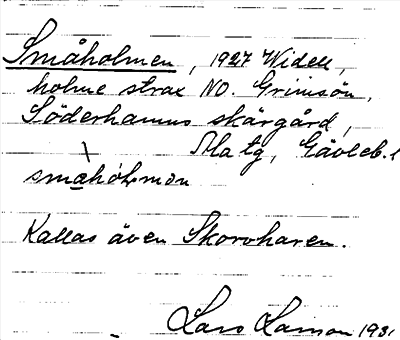 Småholmen, 1927 Widell,
holme strax NO. Grimsön,
Söderhamns skärgård,
Ala tg, Gävleb. l
småhòlmən
Kallas även Skorvharen.
Lars Larson 193